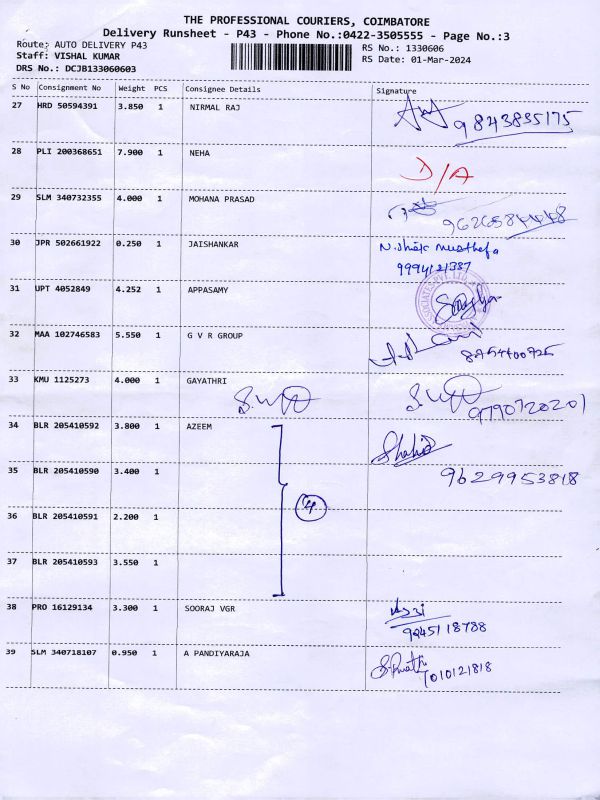 THE PROFESSIONAL COURIERS, COIMBATORE
Delivery Runsheet - P43 - Phone No.:0422-3505555 - Page No.:3
Route: AUTO DELIVERY P43 RS No.: 1330606
Staff: VISHAL KUMAR RS Date: 01-Mar-2024
DRS No.: DCJB133060603
S No Consignment No Weight PCS Consignee Details Signature
27 HRD 50594391 3.850 1 NIRMAL RAJ
9843835175
28 PLI 200368651 7.900 1 NEHA D/A
29 SLM 340732355 4.000 1 MOHANA PRASAD
30 JPR 502661922 0.250 1 JAISHANKAR
9994121387
31 UPT 4052849 4.252 1 APPASAMY
32 MAA 102746583 5.550 1 G V R GROUP
33 KMU 1125273 4.000 1 GAYATHRI
9790720201
34 BLR 205410592 3.800 1 AZEEM
35 BLR 205410590 3.400 1 9629953818
36 BLR 205410591 2.200 1 4
37 BLR 205410593 3.550 1
38 PRO 16129134 3.300 1 SOORAJ VGR
9245118788
39 SLM 340718107 0.950 1 A PANDIYARAJA
7010121818